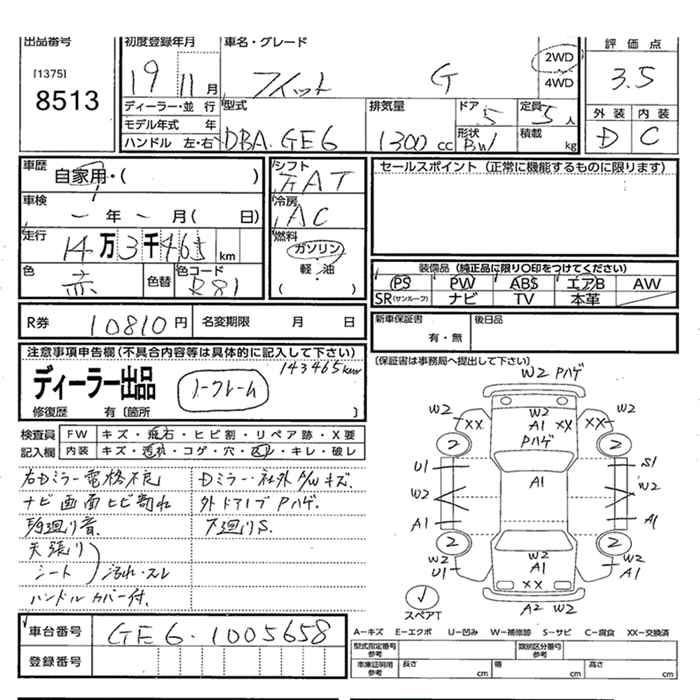 出品番号
[1375]
8513
初度登録年月
19 11月
車名・グレード
フィット G
2WD
・
4WD
評価点
3.5
外装 内装
D C
ディーラー・並行
モデル年式 年
ハンドル 左・右
型式
DBA.GE6
排気量
1300cc
ドア
5
形状
BW
定員
5人
積載
kg
車歴
自家用・( )
車検
ー年ー月( 日)
走行
14万3千465km
色
赤
色替
色コード
R81
シフト
FAT
冷房
AC
燃料
ガソリン
軽・油
( )
セールスポイント (正常に機能するものに限ります)
装備品 (純正品に限り○印をつけてください)
PS PW ABS エアB AW
SR(サンルーフ) ナビ TV 本革
R券 10810円
名変期限 月 日
新車保証書
有・無
後日品
(保証書は事務局へ提出して下さい)
注意事項申告欄(不具合内容等は具体的に記入して下さい)
143465km
ディーラー出品
ノークレーム
修復歴 有〔箇所 〕
検査員 FW キズ・飛石・ヒビ割・リペア跡・X要
記入欄 内装 キズ・汚れ・コゲ・穴・スレ・キレ・破レ
右Dミラー電格不良
ナビ画面ヒビ割れ
天張り
シート 汚れ・スレ
ハンドルカバー付.
Dミラー社外 F/Wキズ.
外ドアノブPハゲ.
下廻りS.
W2 Pハゲ
W2
XX
W2
A1
Pハゲ
XX
XX
W2
2
2
U1
W2
A1
A1
S1
W2
A1
2
2
W2
U1
W2
A1
XX
W2
A1
A2 W2
スペアT
車台番号 GE6-1005658
登録番号
A−キズ E−エクボ U−凹み W−補修跡 S−サビ C−腐食 XX−交換済
型式指定番号
参考
類別区分番号
参考
車庫証明用
参考
長さ cm
幅 cm
高さ cm